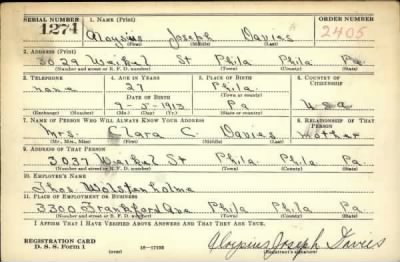 SERIAL NUMBER 1. NAME (Print) ORDER NUMBER
1274 Aloysius Joseph Davies 2405
(First) (Middle) (Last)
2. ADDRESS (Print)
3029 Weikel St Phila Phila Pa.
(Number and street or R. F. D. number) (Town) (County) (State)
3. TELEPHONE 4. AGE IN YEARS 5. PLACE OF BIRTH 6. COUNTRY OF CITIZENSHIP
none 27 Phila.
DATE OF BIRTH (Town or county)
9-5-1913 Pa USA
(Exchange) (Number) (Mo.) (Day) (Yr.) (State or country)
7. NAME OF PERSON WHO WILL ALWAYS KNOW YOUR ADDRESS 8. RELATIONSHIP OF THAT PERSON
Mrs. Clara C. Davies Mother
(Mr., Mrs., Miss) (First) (Middle) (Last)
9. ADDRESS OF THAT PERSON
3037 Weikel St Phila. Phila Pa.
(Number and street or R. F. D. number) (Town) (County) (State)
10. EMPLOYER'S NAME
Thos Wolstenholme
11. PLACE OF EMPLOYMENT OR BUSINESS
3300 Frankford Ave Phila Phila Pa
(Number and street or R. F. D. number) (Town) (County) (State)
I AFFIRM THAT I HAVE VERIFIED ABOVE ANSWERS AND THAT THEY ARE TRUE.
REGISTRATION CARD
D. S. S. Form 1 (over) Aloysius Joseph Davies
(Registrant's signature)